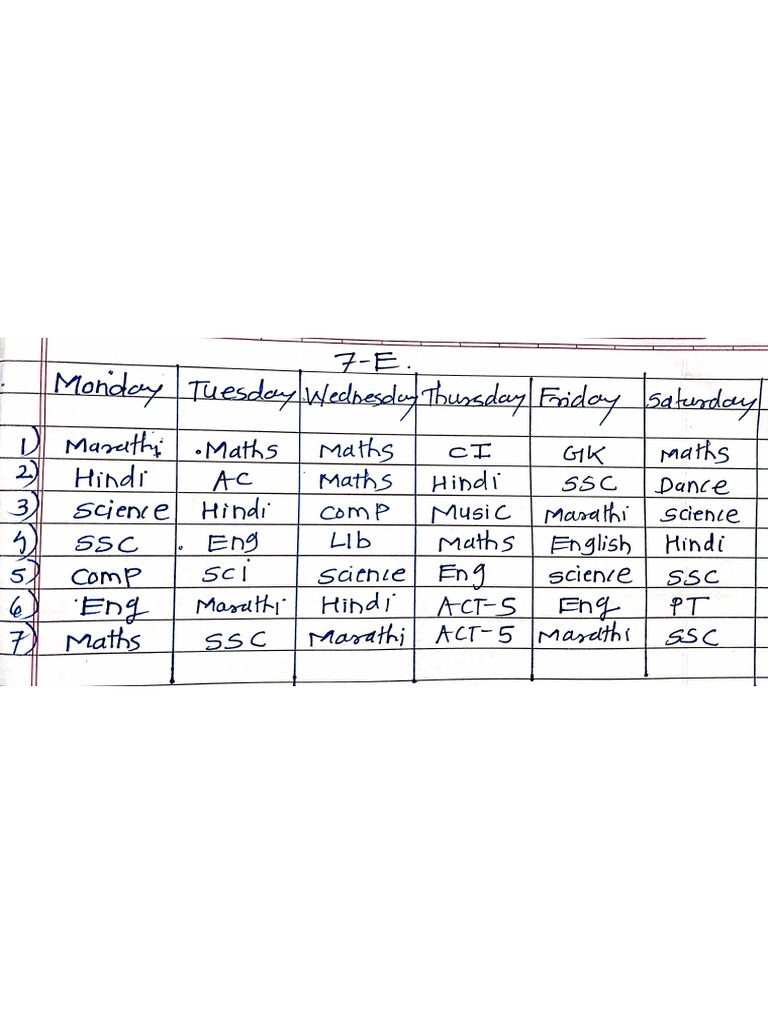 7-E.
Monday Tuesday Wednesday Thursday Friday Saturday
1) Marathi Maths Maths CI GK Maths
2) Hindi AC Maths Hindi SSC Dance
3) Science Hindi Comp Music Marathi Science
4) SSC Eng LIb Maths English Hindi
5) Comp Sci Science Eng Science SSC
6) Eng Marathi Hindi ACT-5 Eng PT
7) Maths SSC Marathi ACT-5 Marathi SSC